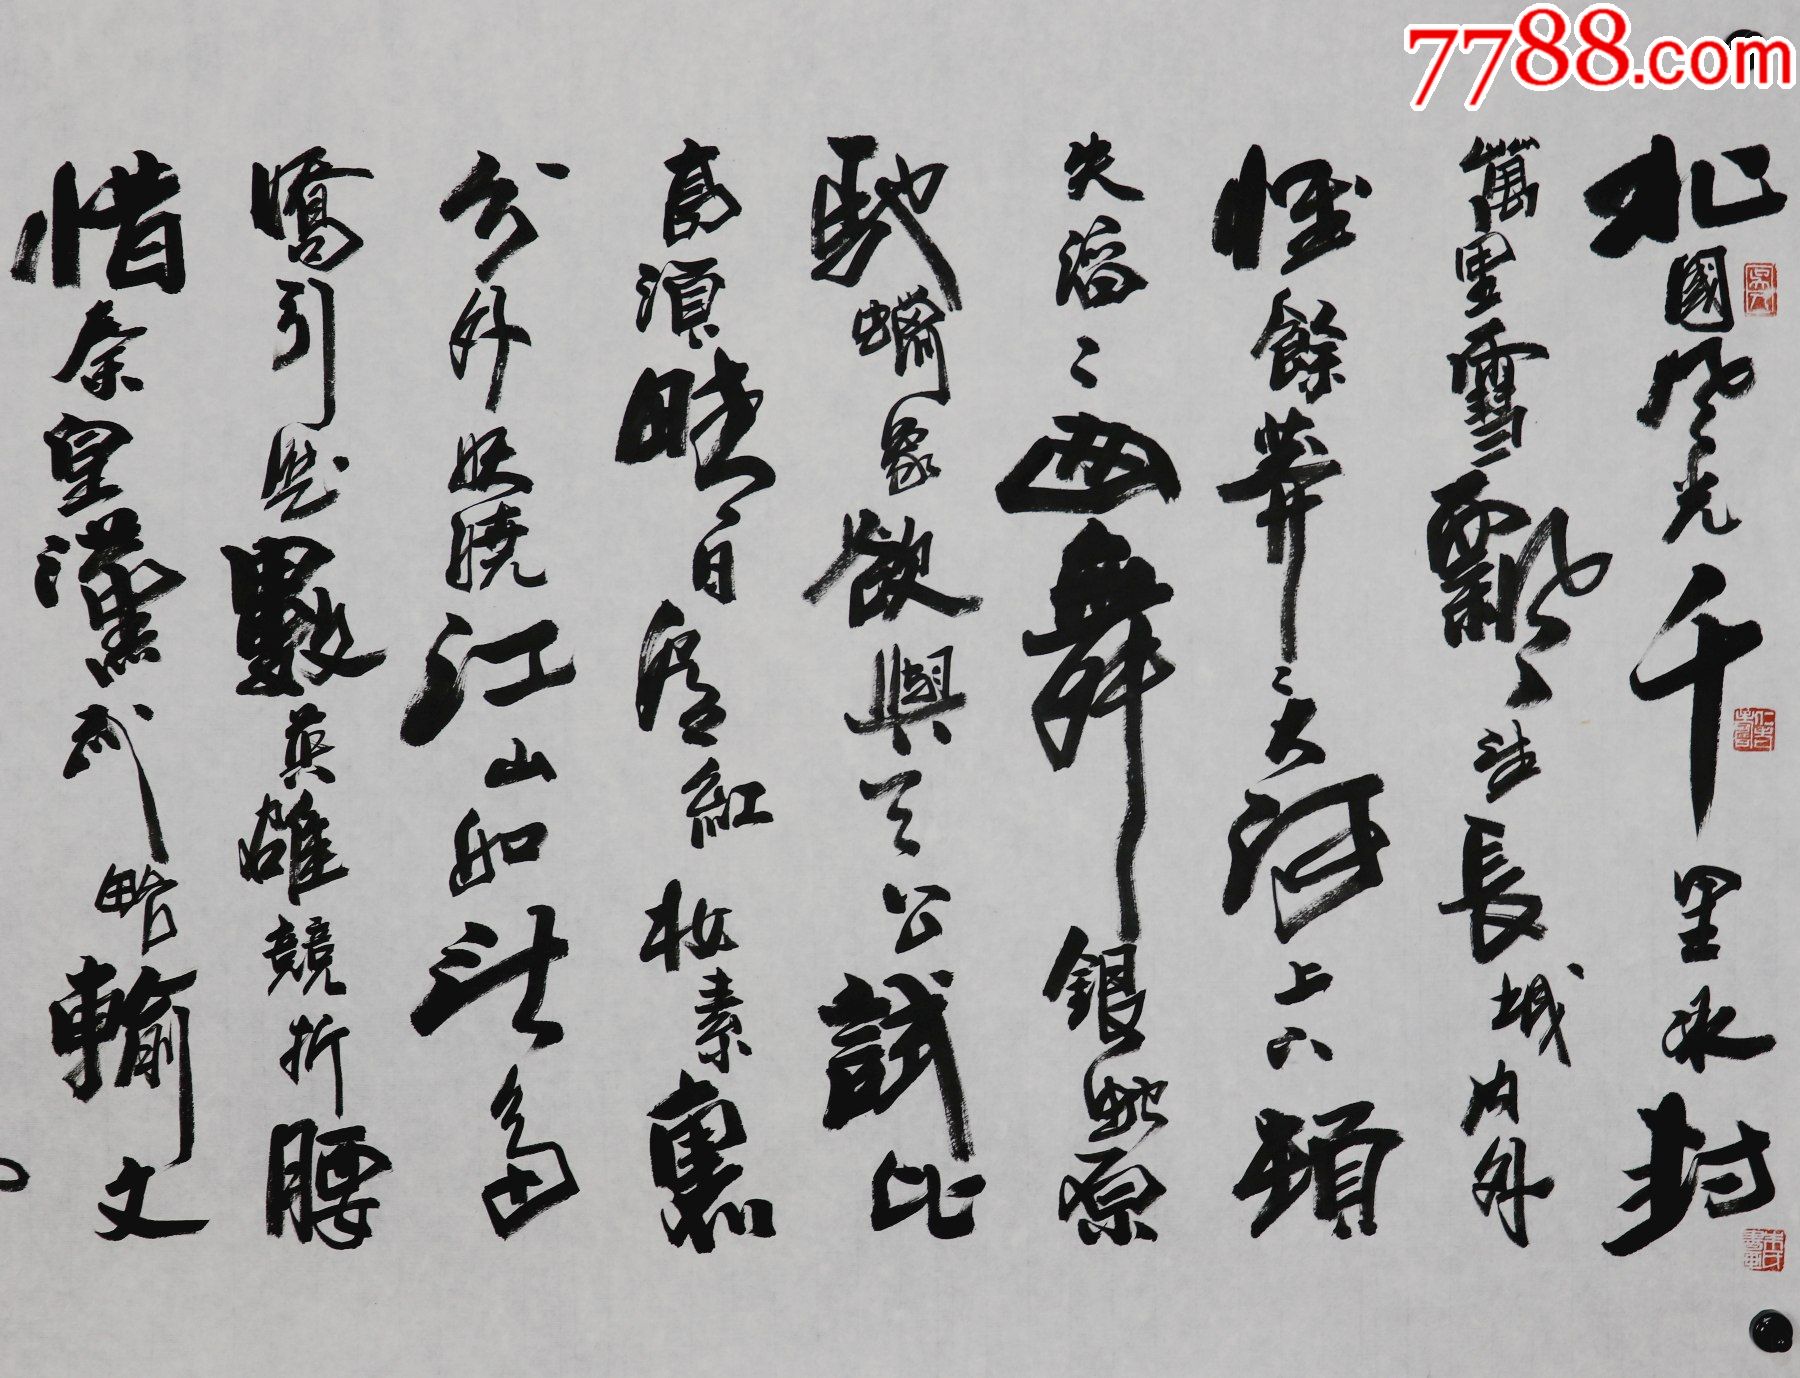 7788.com
北國風光千里冰封
萬里雪飄望長城内外
惟餘莽〻大河上下頓
失滔〻山舞銀蛇原
馳蠟象欲與天公試比
高須晴日看紅妝素裹
分外妖嬈江山如此多
嬌引無數英雄競折腰
惜秦皇漢武略輸文